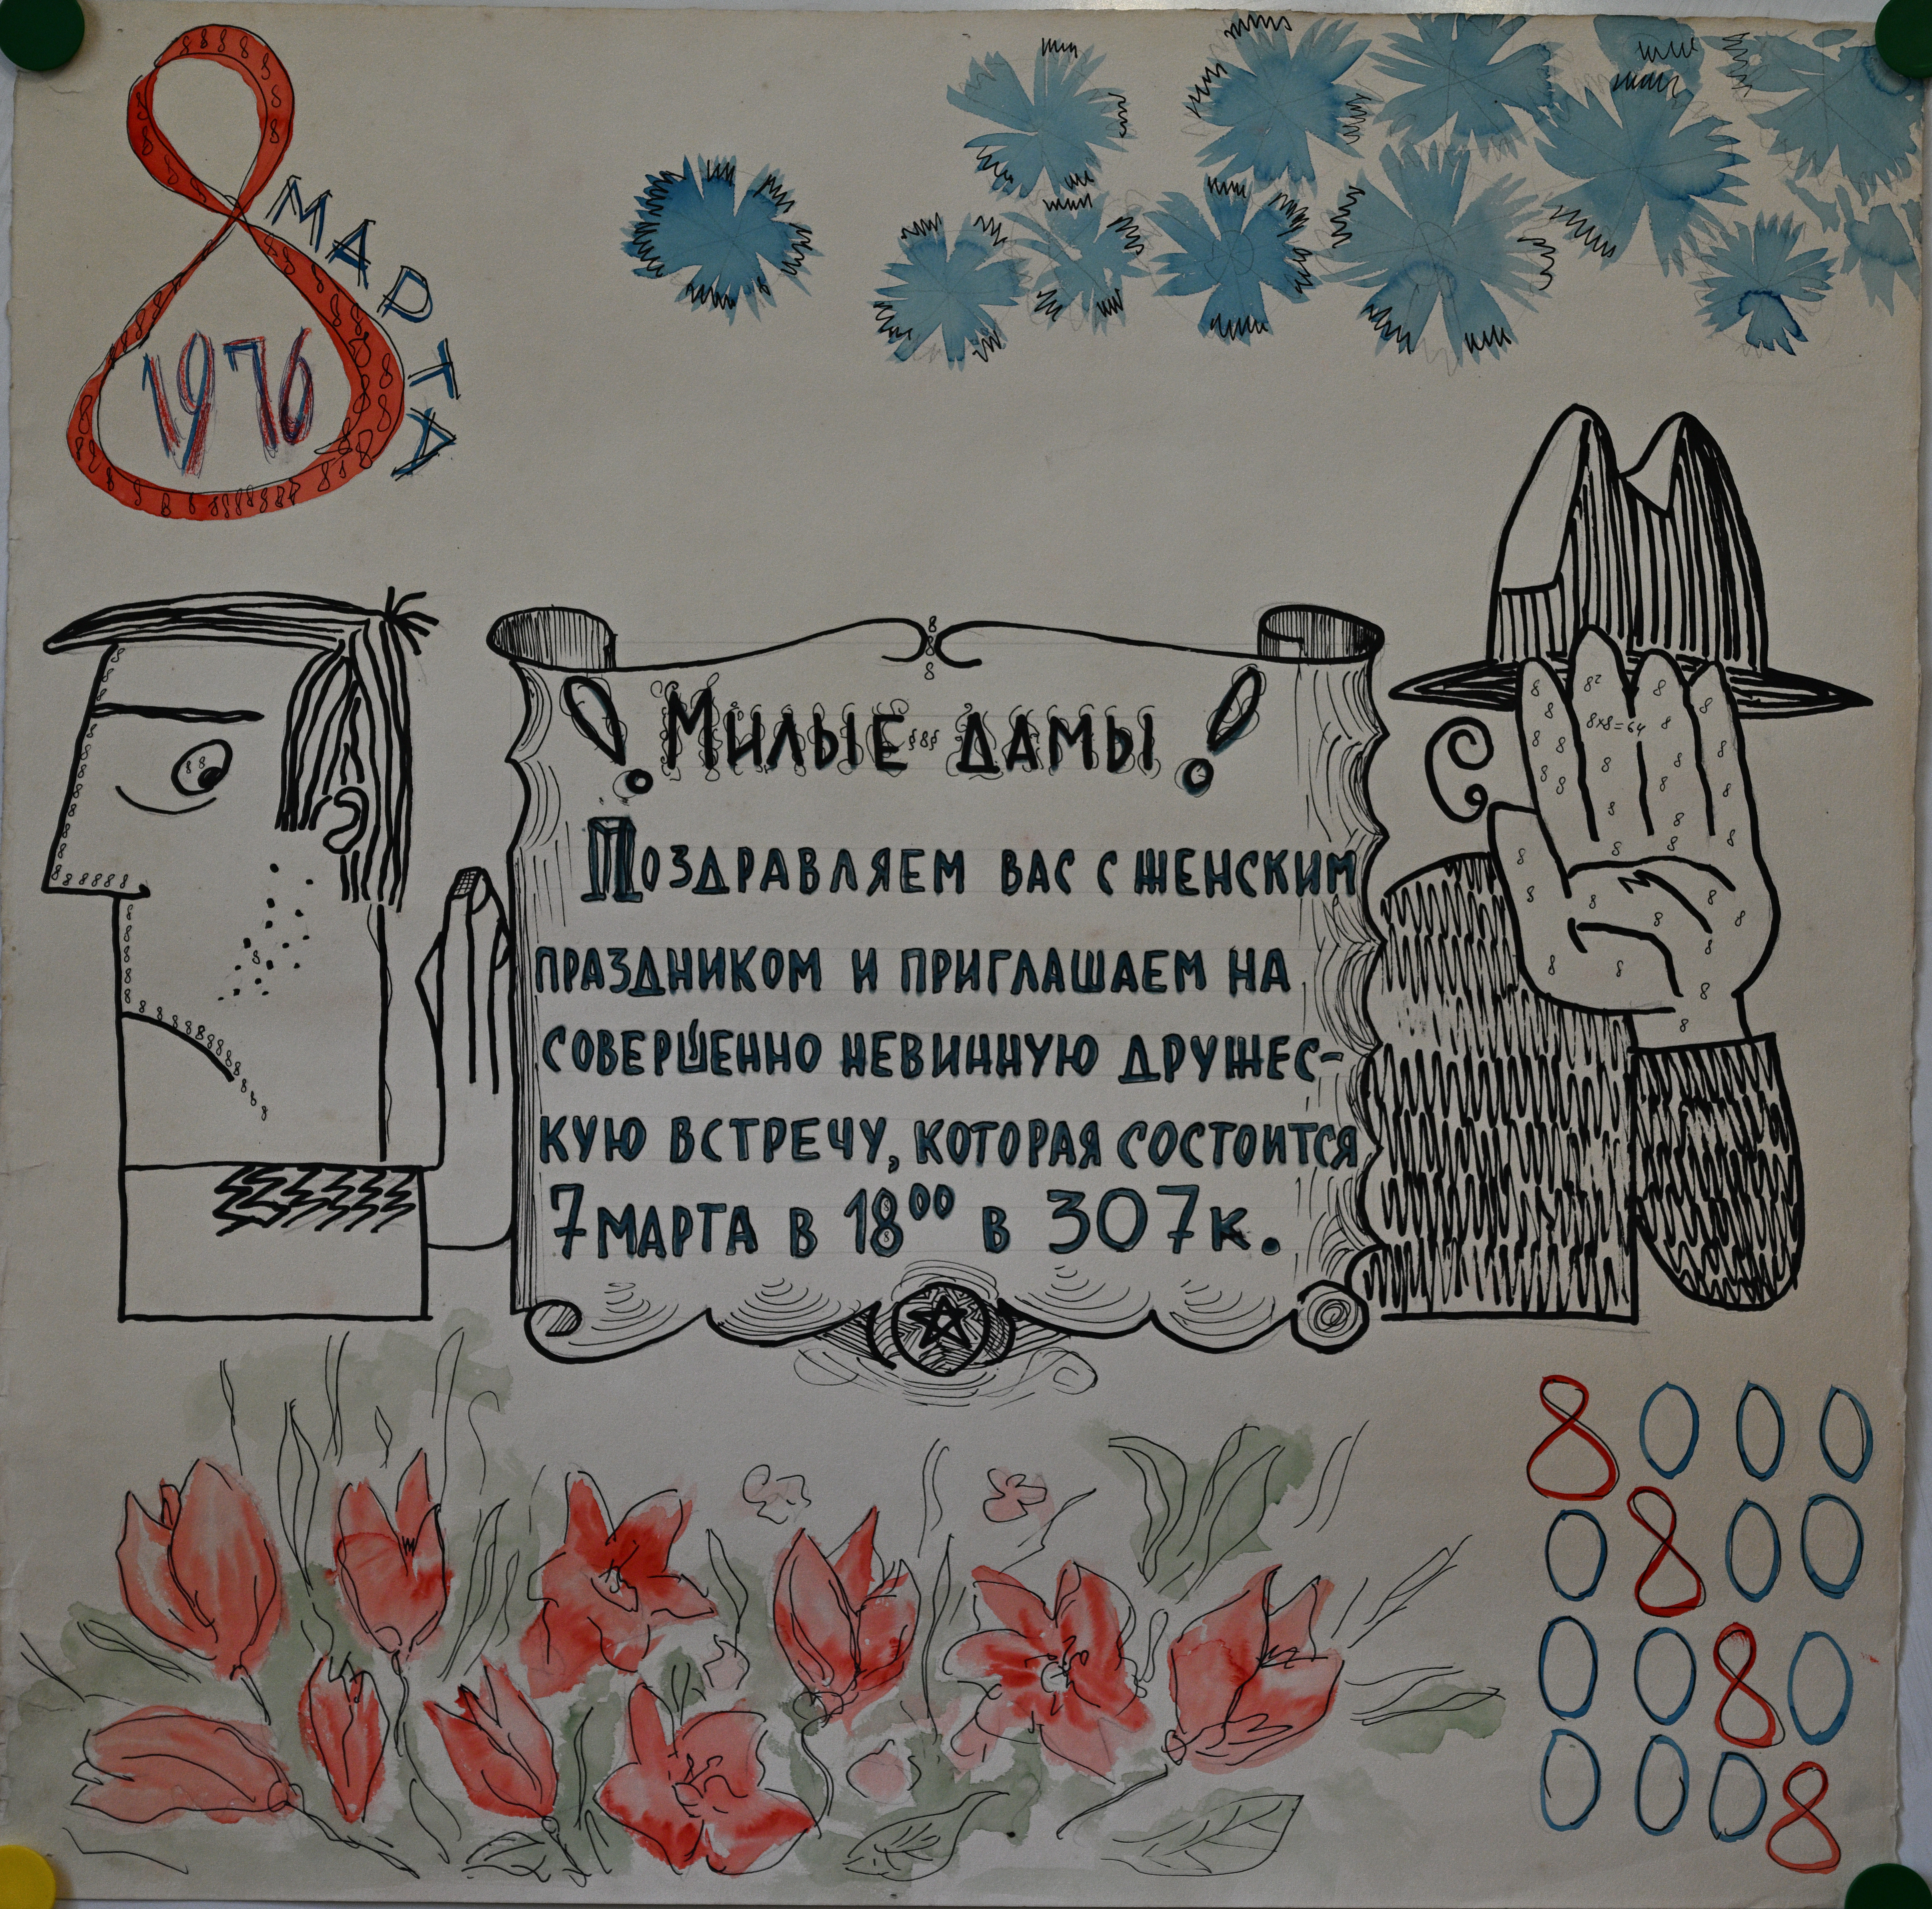 8
МАРТА
1976
! Милые дамы !
Поздравляем вас с женским
праздником и приглашаем на
совершенно невинную дружес-
кую встречу, которая состоится
7 марта в 18⁰⁰ в 307 к.
8²
8×8=64
8 0 0 0
0 8 0 0
0 0 8 0
0 0 0 8